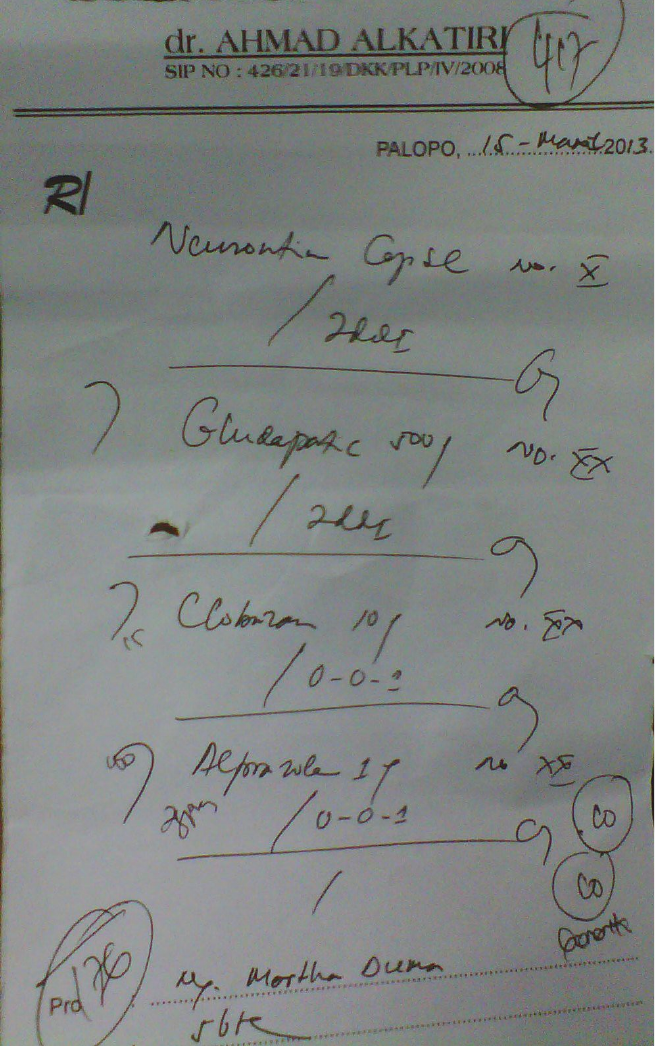 dr. AHMAD ALKATIRI
SIP NO : 426/21/19/DKK/PLP/IV/2008
417
PALOPO, 15 - Maret 2013
R/
Neurontin Capsl no. X
/ 2dd1
Gludepatic 500 no. XX
/ 2dd1
Clobazam 10 no. XX
/ 0-0-1
Alprazola 1 no XX
/ 0-0-1
Pro
Ny. Martha Duma